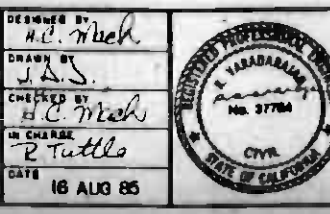 DESIGNED BY
H.C. Mech
DRAWN BY
J.D.S.
CHECKED BY
H.C. Mech
IN CHARGE
R Tuttle
DATE
16 AUG 85
REGISTERED PROFESSIONAL
R. VARADARAJAN
No. 37784
CIVIL
STATE OF CALIFORNIA